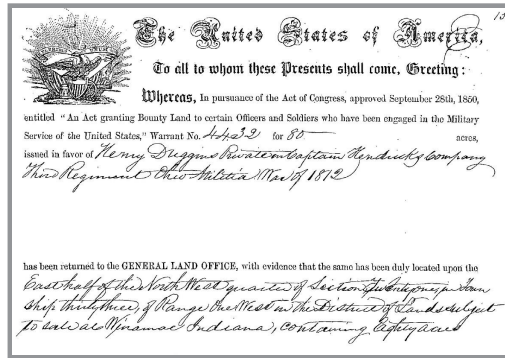 The United States of America,
To all to whom these Presents shall come, Greeting:
Whereas, In pursuance of the Act of Congress, approved September 28th, 1850,
entitled "An Act granting Bounty Land to certain Officers and Soldiers who have been engaged in the Military
Service of the United States," Warrant No. 4432 for 80 acres,
issued in favor of Henry Duggins Private in Captain Hendricks Company
Third Regiment Ohio Militia War of 1812
has been returned to the GENERAL LAND OFFICE, with evidence that the same has been duly located upon the
East half of the North West quarter of Section in Town
ship thirty three, of Range One West in the District of Lands subject
to sale at Winamac Indiana, containing Eighty acres